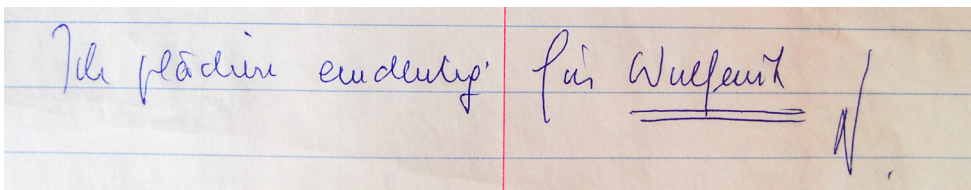 Ich plädiere eindeutig für Wulfenit